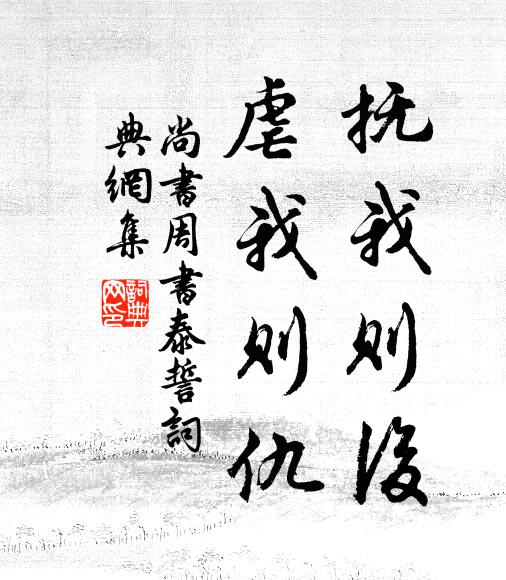 抚我则後
虐我则仇
尚書周書泰誓詞
典網集
詞典
网印